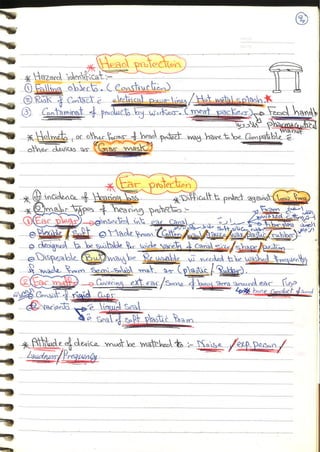 Head protection
* Hazard identificat:-
① Falling objects. (Construction)
② Risk of Contact c electrical power lines / Hot metal splash *
③ Contaminat of products by workers. (meat packers) Food handl
pharmaceutical
* Helmets, or other forms of head protect may have to be Compatible c
other devices as Gas mask
Ear protection
* of incidence of Hearing loss * Difficult to protect against low freq
* 2 main types of hearing protectors:-
① Ear plugs → inserted into ear Canal
① flexible / Soft ② Made from Cotton / wax / plastic / rubber
③ designed to be suitable for wide variety of canal size / shape / position
④ Disposable But may be Re usable needed to be washed frequently
made from Semi-solid mat. as (plastic / Rubber).
② Ear muffs → Covering ext. ear / Some of bony area around ear
① Consist of rigid Cups
② variants liquid Seal
Seal of soft plastic foam
* Attitude of device must be matched to :- Noise / exp. person /
Loudness / Frequency